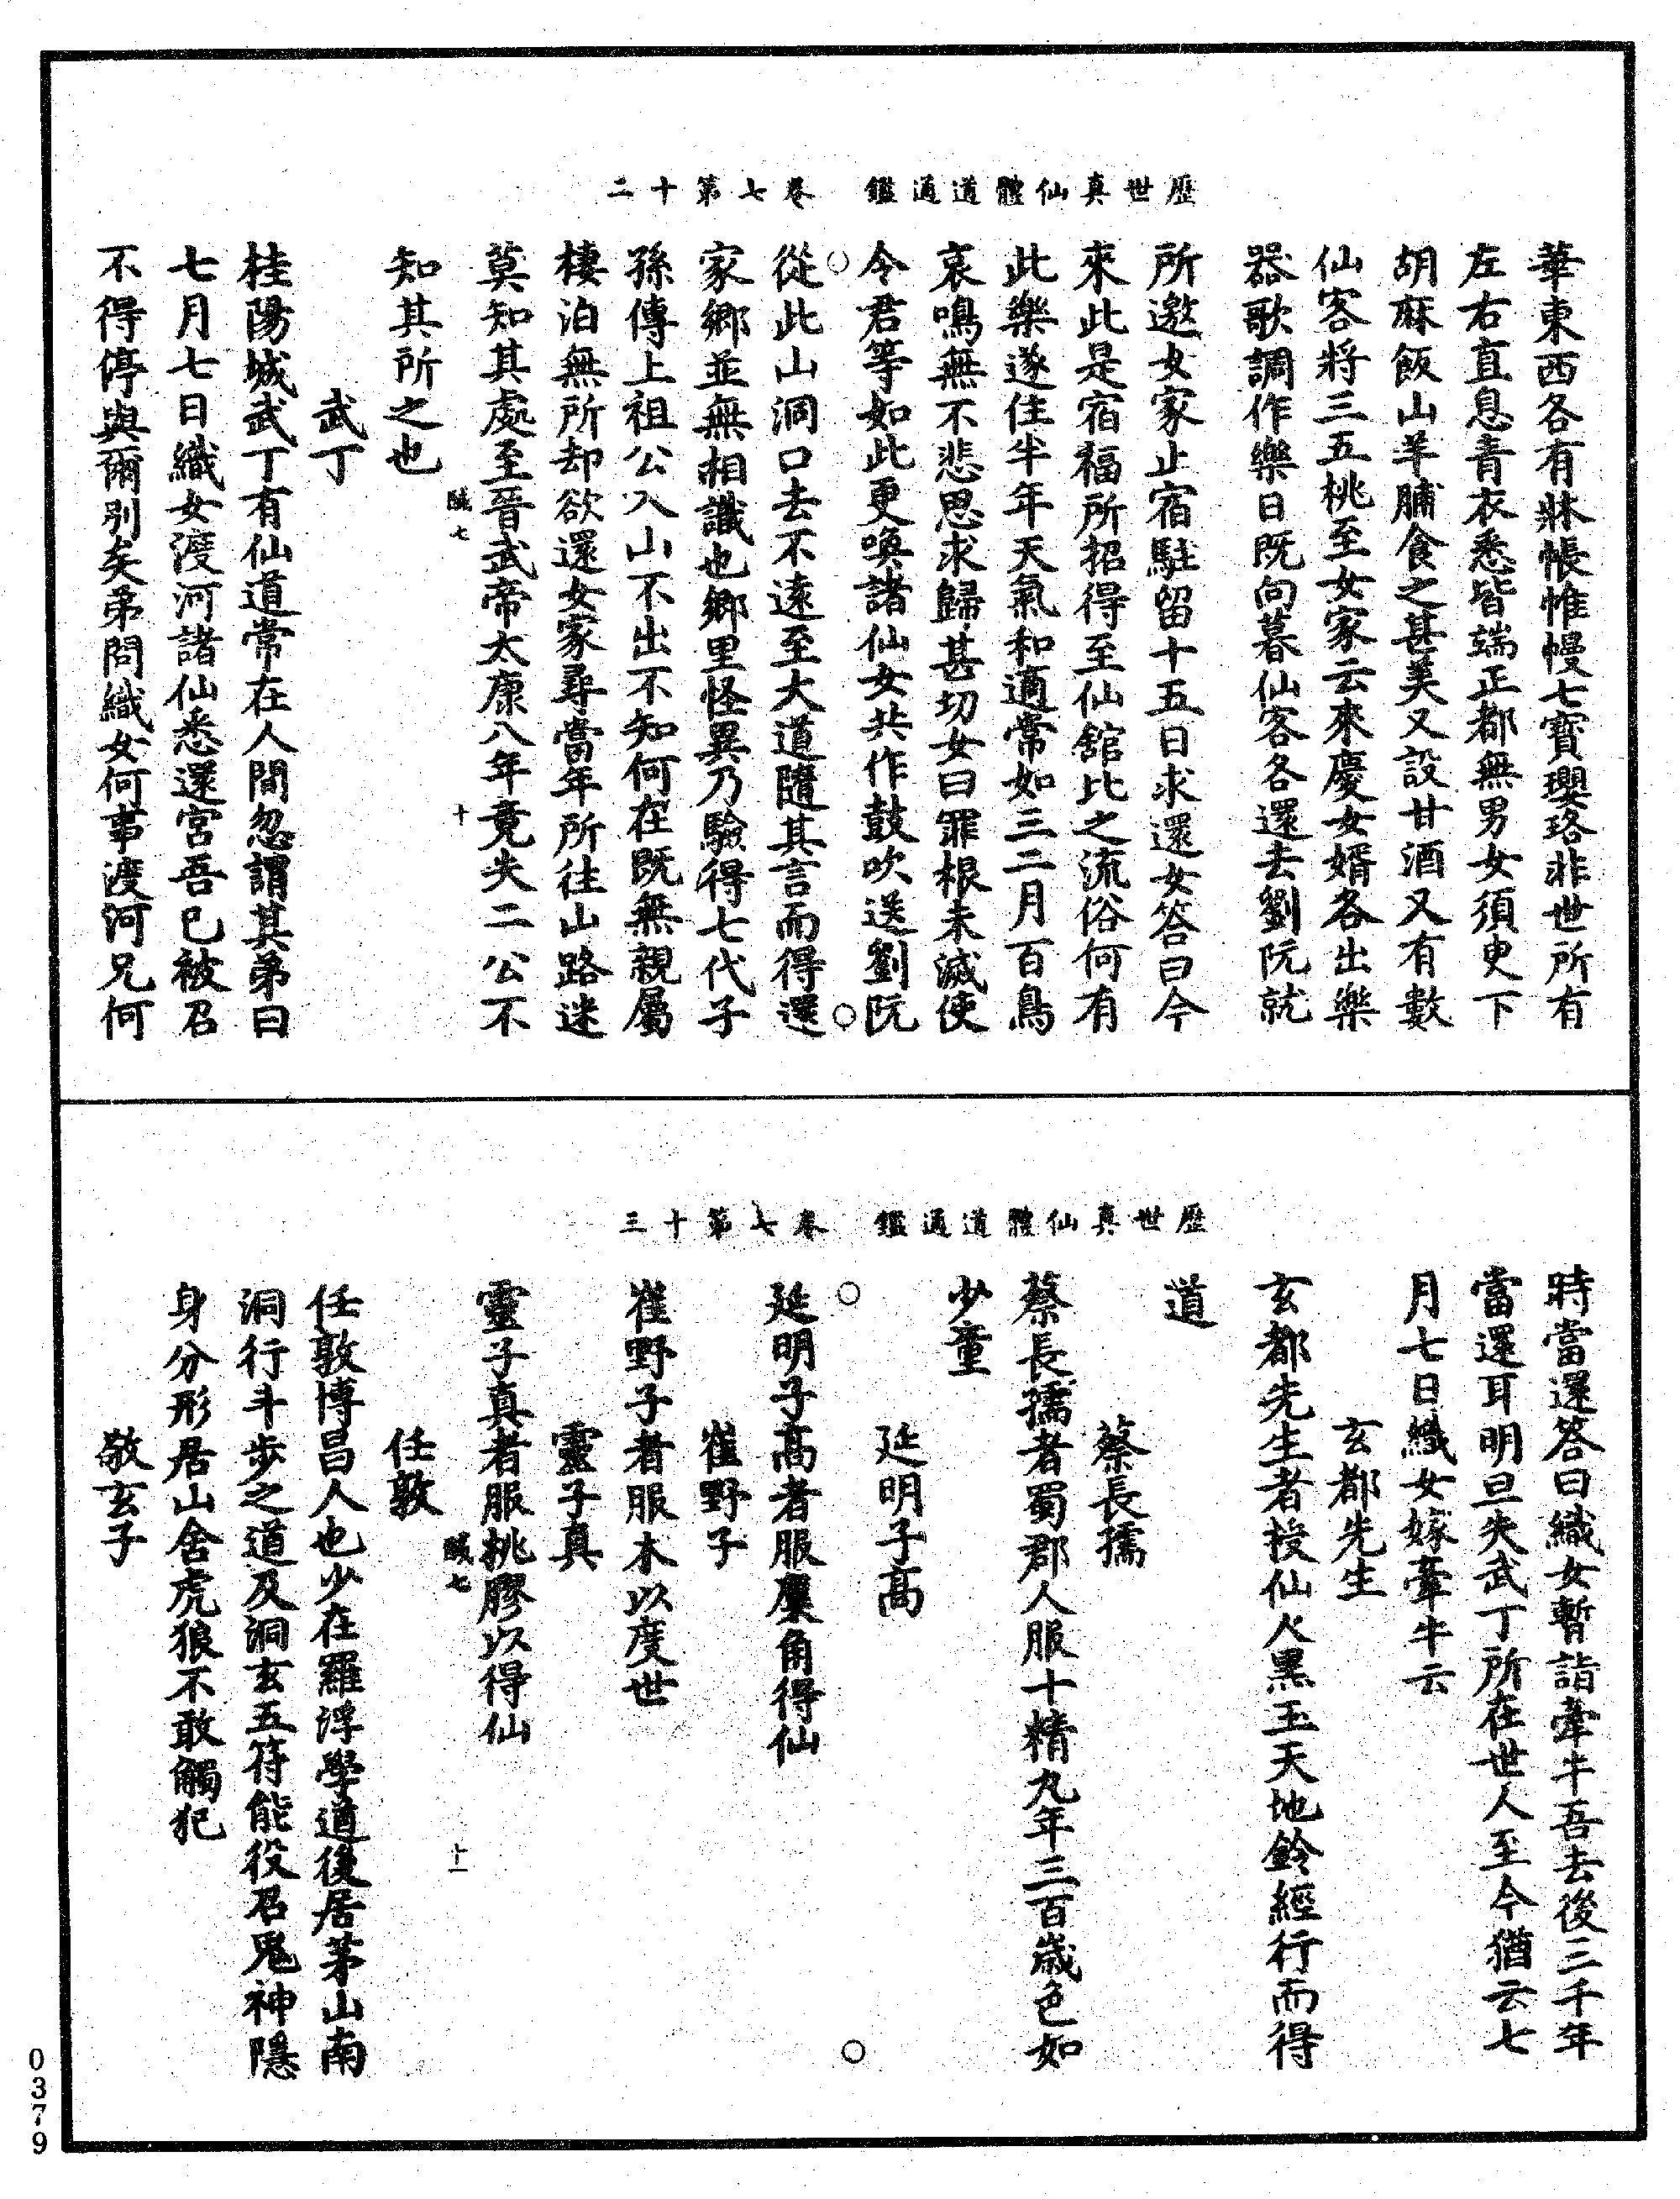 歷世真仙體道通鑑　卷七第十二
華東西各有牀帳帷幔七寶瓔珞非世所有
左右直息青衣悉皆端正都無男女須臾下
胡麻飯山羊脯食之甚美又設甘酒又有數
仙客將三五桃至女家云來慶女婿各出樂
器歌調作樂日既向暮仙客各還去劉阮就
所邀女家止宿駐留十五日求還女答曰今
來此是宿福所招得至仙舘比之流俗何有
此樂遂住半年天氣和適常如三二月百鳥
哀鳴無不悲思求歸甚切女曰罪根未滅使
令君等如此更喚諸仙女共作鼓吹送劉阮
從此山洞口去不遠至大道隨其言而得還
家鄉並無相識也鄉里怪異乃驗得七代子
孫傳上祖公入山不出不知何在既無親屬
棲泊無所却欲還女家尋當年所往山路迷
莫知其處至晉武帝太康八年竟失二公不
賊七　十
知其所之也
武丁
桂陽城武丁有仙道常在人間忽謂其弟曰
七月七日織女渡河諸仙悉還宮吾已被召
不得停與爾別矣弟問織女何事渡河兄何
歷世真仙體道通鑑　卷七第十三
時當還答曰織女暫詣牽牛吾去後三千年
當還耳明旦失武丁所在世人至今猶云七
月七日織女嫁牽牛云
玄都先生
玄都先生者授仙人黑玉天地鈐經行而得
道
蔡長孺
蔡長孺者蜀郡人服十精丸年三百歲色如
少童
延明子高
延明子高者服麋角得仙
崔野子
崔野子者服木以度世
靈子真
靈子真者服桃膠以得仙
賊七　十一
任敦
任敦博昌人也少在羅浮學道後居茅山南
洞行斗步之道及洞玄五符能役召鬼神隱
身分形居山舍虎狼不敢觸犯
敬玄子
0379